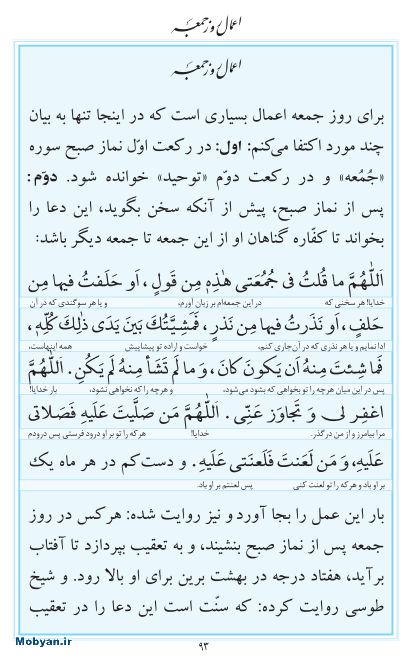 اعمال روز جمعه
اعمال روز جمعه
برای روز جمعه اعمال بسیاری است که در اینجا تنها به بیان
چند مورد اکتفا می‌کنم: اول: در رکعت اوّل نماز صبح سوره
«جُمُعه» و در رکعت دوّم «توحید» خوانده شود. دوّم:
پس از نماز صبح، پیش از آنکه سخن بگوید، این دعا را
بخواند تا کفّاره گناهان او از این جمعه تا جمعه دیگر باشد:
اَللّٰهُمَّ ما قُلتُ فی جُمُعَتی هٰذِهِ مِن قَولٍ، اَو حَلَفتُ فیها مِن
خدایا! هر سخنی که در این جمعه‌ام بر زبان آورم، و یا هر سوگندی که در آن
حَلفٍ، اَو نَذَرتُ فیها مِن نَذرٍ، فَمَشِیَّتُكَ بَینَ یَدَی ذٰلِكَ كُلِّهِ،
ادا نمایم و یا هر نذری که در آن جاری کنم، خواست و اراده تو پیشاپیش همه اینهاست،
فَما شِئتَ مِنهُ اَن یَكونَ كانَ، وَ ما لَم تَشَأ مِنهُ لَم یَكُن. اَللّٰهُمَّ
پس در این میان هرچه را تو بخواهی که بشود می‌شود، و هرچه را که نخواهی نشود، بار خدایا!
اغفِر لی وَ تَجاوَز عَنّی. اَللّٰهُمَّ مَن صَلَّیتَ عَلَیهِ فَصَلاتی
مرا بیامرز و از من درگذر. خدایا! هر که را تو بر او درود فرستی پس درودم
عَلَیهِ، وَ مَن لَعَنتَ فَلَعنَتی عَلَیهِ. و دست کم در هر ماه یک
بر او باد و هر که را تو لعنت کنی پس لعنتم بر او باد.
بار این عمل را بجا آورد و نیز روایت شده: هرکس در روز
جمعه پس از نماز صبح بنشیند، و به تعقیب بپردازد تا آفتاب
برآید، هفتاد درجه در بهشت برین برای او بالا رود. و شیخ
طوسی روایت کرده: که سنّت است این دعا را در تعقیب
۹۳
Mobyan.ir